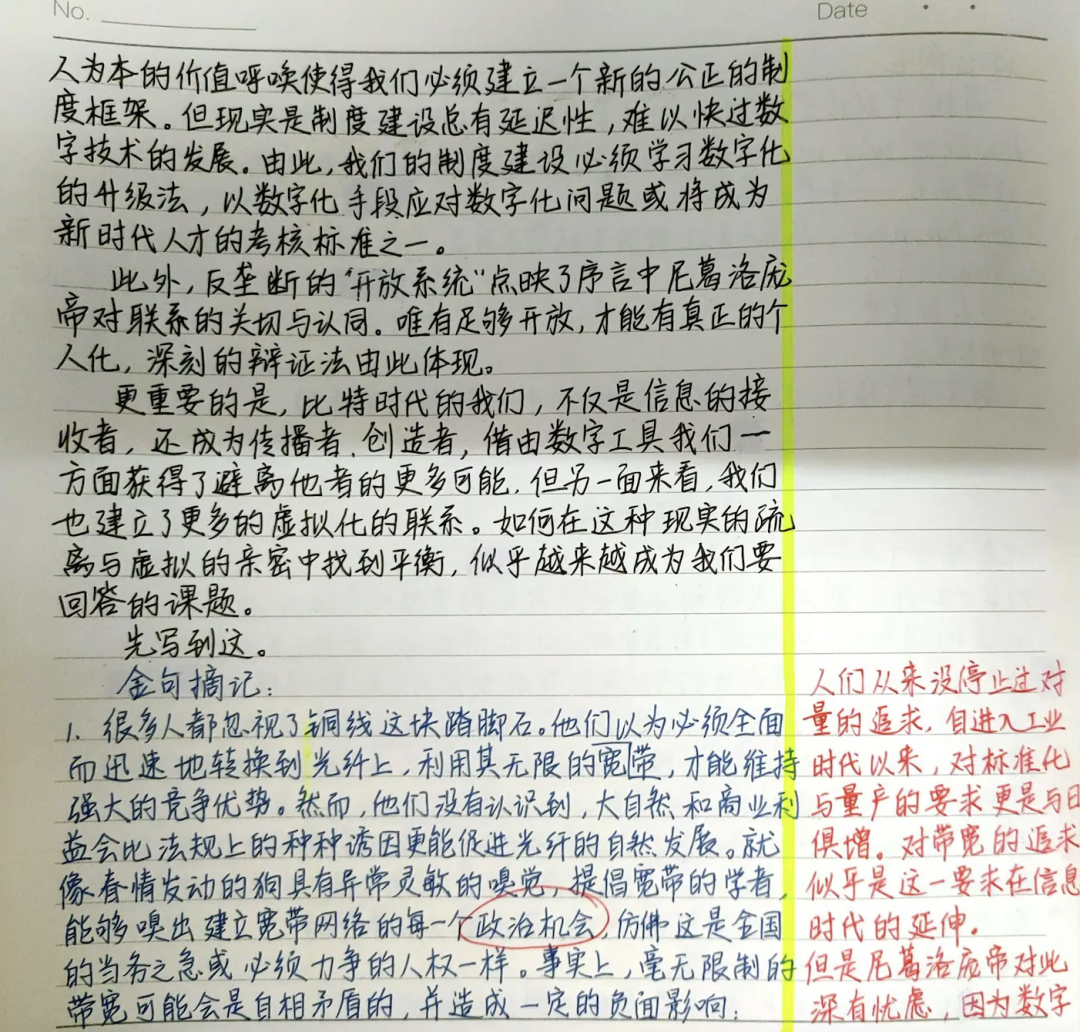 No.
Date
人为本的价值呼唤使得我们必须建立一个新的公正的制
度框架。但现实是制度建设总有延迟性，难以快过数
字技术的发展。由此，我们的制度建设必须学习数字化
的升级法，以数字化手段应对数字化问题或将成为
新时代人才的考核标准之一。
此外，反垄断的“开放系统”点映了序言中尼葛洛庞
帝对联系的关切与认同。唯有足够开放，才能有真正的个
人化，深刻的辩证法由此体现。
更重要的是，比特时代的我们，不仅是信息的接
收者，还成为传播者、创造者，借由数字工具我们一
方面获得了避离他者的更多可能，但另一面来看，我们
也建立了更多的虚拟化的联系。如何在这种现实的疏
离与虚拟的亲密中找到平衡，似乎越来越成为我们要
回答的课题。
先写到这。
金句摘记：
1. 很多人都忽视了铜线这块踏脚石。他们以为必须全面
而迅速地转换到光纤上，利用其无限的宽带，才能维持
强大的竞争优势。然而，他们没有认识到，大自然和商业利
益会比法规上的种种诱因更能促进光纤的自然发展。就
像春情发动的狗具有异常灵敏的嗅觉，提倡宽带的学者，
能够嗅出建立宽带网络的每一个政治机会，仿佛这是全国
的当务之急或必须力争的人权一样。事实上，毫无限制的
带宽可能会是自相矛盾的，并造成一定的负面影响；
人们从来没停止过对
量的追求，自进入工业
时代以来，对标准化
与量产的要求更是与日
俱增。对带宽的追求
似乎是这一要求在信息
时代的延伸。
但是尼葛洛庞帝对此
深有忧虑，因为数字